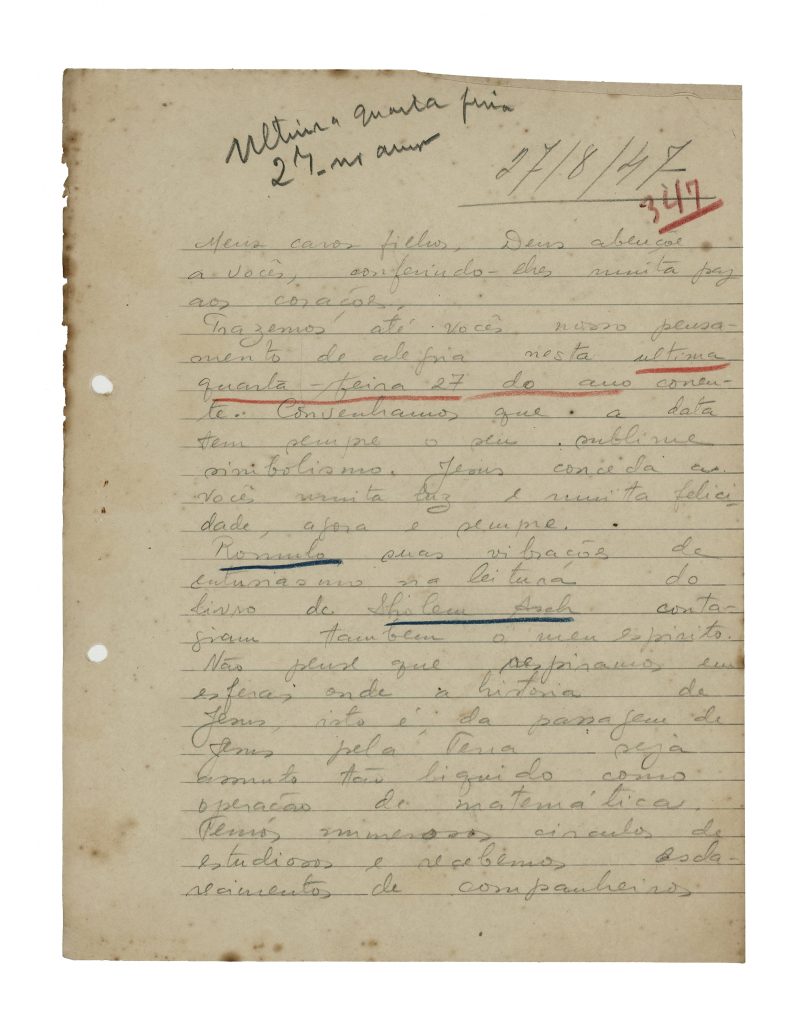 Ultima quarta feira
27 - no ano
27/8/47
347
Meus caros filhos, Deus abençôe
a vocês, conferindo-lhes muita paz
aos corações.
Trazemos até vocês nosso pensa-
mento de alegria nesta ultima
quarta-feira 27 do ano corren-
te. Convenhamos que a data
tem sempre o seu sublime
simbolismo. Jesus conceda a
vocês muita luz e muita felici-
dade, agora e sempre.
Romulo suas vibrações de
entusiasmo na leitura do
livro de Sholem Asch conta-
giam também o meu espirito.
Não pense que respiramos em
esferas onde a historia de
Jesus, isto é, da passagem de
Jesus pela Terra seja
assunto tão liquido como
operação de matemática.
Temos numerosos circulos de
estudiosos e recebemos escla-
recimentos de companheiros